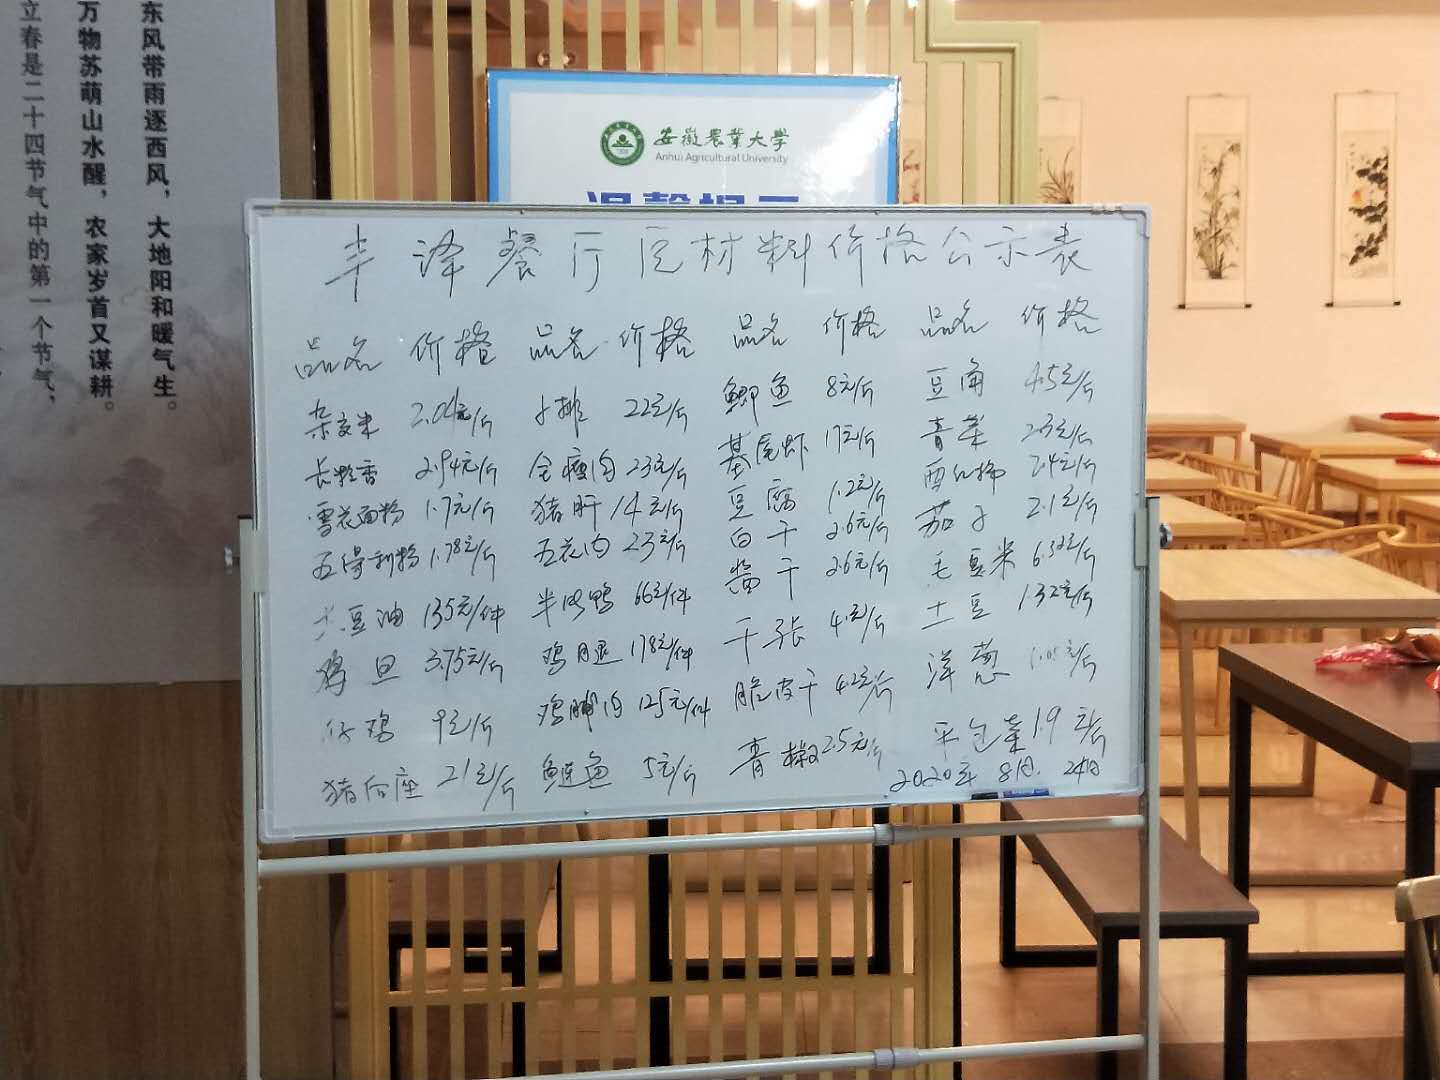 东风带雨逐西风，大地阳和暖气生。
万物苏萌山水醒，农家岁首又谋耕。
立春是二十四节气中的第一个节气，
安徽农业大学
Anhui Agricultural University
温馨提示
丰泽餐厅原材料价格公示表
品名 价格 品名 价格 品名 价格 品名 价格
杂交米 2.04元/斤 小排 22元/斤 鲫鱼 8元/斤 豆角 4.5元/斤
长粒香 2.94元/斤 全瘦肉 23元/斤 基尾虾 17元/斤 青菜 2.3元/斤
雪花面粉 1.7元/斤 猪肝 14元/斤 豆腐 1.2元/斤 西红柿 2.4元/斤
五得利粉 1.78元/斤 五花肉 23元/斤 白干 2.6元/斤 茄子 2.1元/斤
大豆油 135元/件 半片鸭 66元/件 酱干 2.6元/斤 毛豆米 6.32元/斤
鸡旦 3.75元/斤 鸡腿 178元/件 千张 4元/斤 土豆 1.32元/斤
仔鸡 9元/斤 鸡脯肉 125元/件 脆皮干 4.2元/斤 洋葱 1.05元/斤
猪后座 21元/斤 鲢鱼 5元/斤 青椒 2.5元/斤 平包菜 1.9元/斤
2020年8月24日